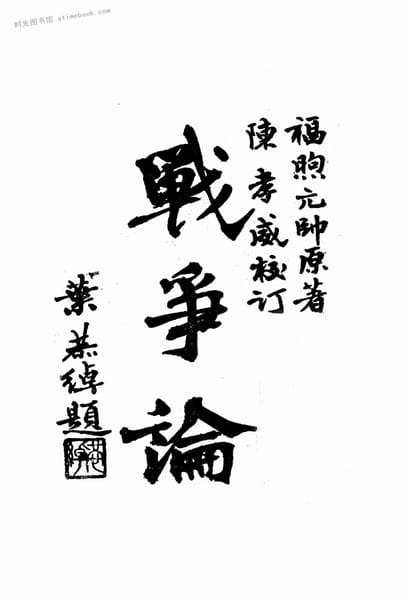 时光图书馆 atimebook.com
福煦元帥原著
陳孝威校订
戰爭論
葉恭綽題